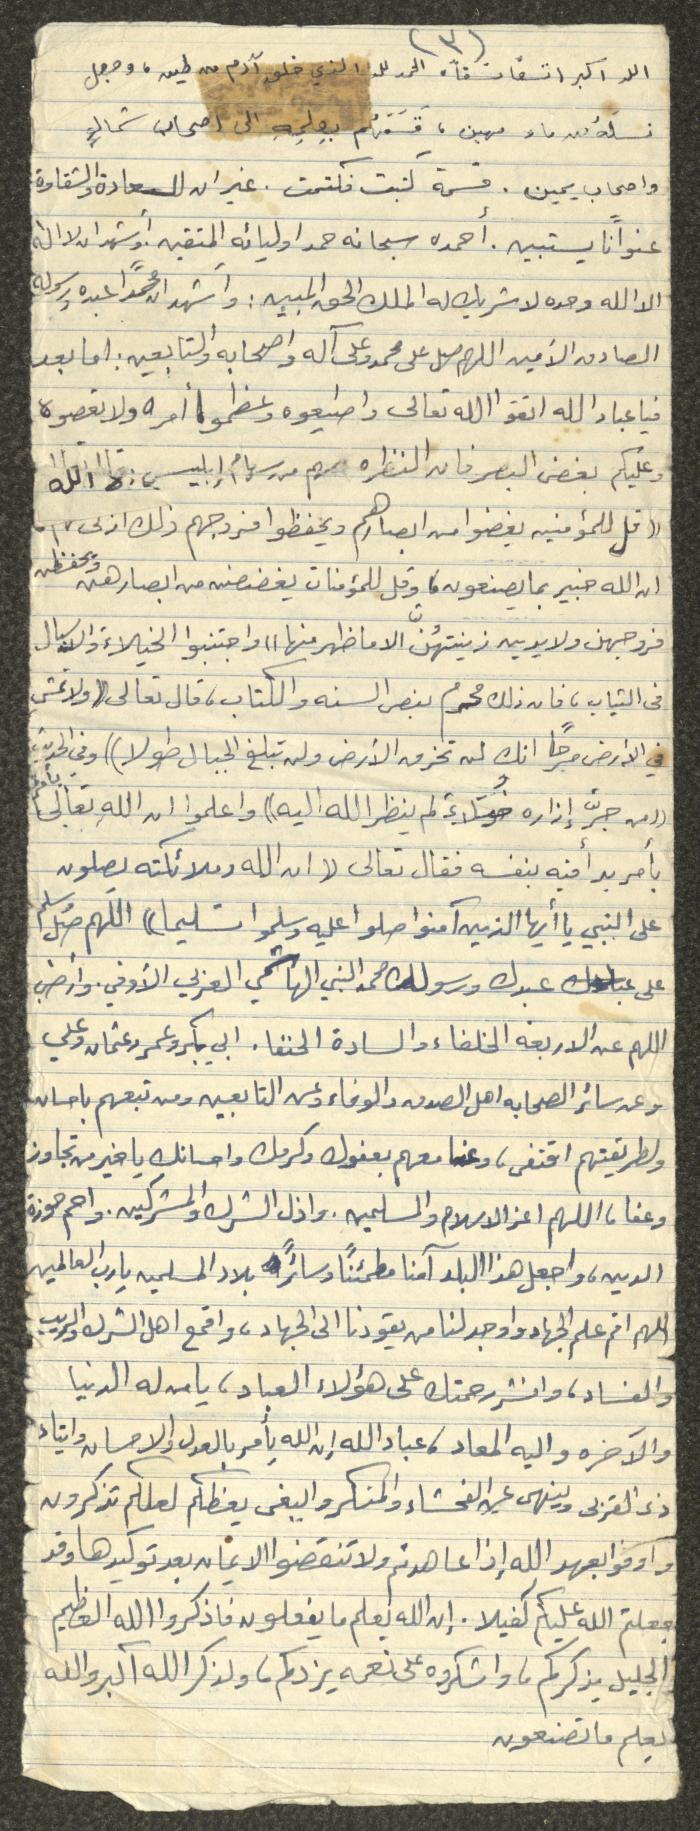 (٣)
الله اكبر اتسقا تسقاه الحمد لله الذي خلق آدم من طين، وجعل
نسله من ماء مهين، قسمهم بعلمه الى اصحاب شمال
واصحاب يمين. قسمة كتبت فكتمت. غير ان للسعادة والشقاوة
عنواناً يستبين. أحمده سبحانه حمد اوليائه المتقين. وأشهد ان لا اله
الا الله وحده لا شريك له الملك الحق المبين: وأشهد ان محمداً عبده ورسوله
الصادق الأمين اللهم صل على محمد وعلى آله واصحابه والتابعين: اما بعد
فيا عباد الله اتقوا الله تعالى واطيعوه وعظموا أمره ولا تعصوه
وعليكم بغض البصر فان النظره سهم من سهام إبليس: قال الله
((قل للمؤمنين يغضوا من ابصارهم ويحفظوا فروجهم ذلك ازكى لهم
ان الله خبير بما يصنعون، وقل للمؤمنات يغضضن من ابصارهن ويحفظن
فروجهن ولا يدين زينتهُنّ الا ما ظهر منها)) واجتنبوا الخيلاء والاسبال
في الثياب، فان ذلك محرم بنص السنه والكتاب، قال تعالى (ولا تمش
في الأرض مرحاً انك لن تخرق الأرض ولن تبلغ الجبال طولا)) وفي الحديث
((من جرّ إزاره خُيَلاءَ لم ينظر الله اليه)) واعلموا ان الله تعالى يأمركم
بأمر بدأ فيه بنفسه فقال تعالى (ان الله وملائكته يصلون
على النبي يا أيها الذين آمنوا صلوا عليه وسلموا تسليما)) اللهم صل وسلم
على عبدك ورسولك محمد النبي الهاشمي العربي الأوفي. وأرض
اللهم عن الاربعه الخلفاء والسادة الحنفا. ابي بكر وعمر وعثمان وعلي
وعن سائر الصحابه اهل الصدق والوفاء وعن التابعين ومن تبعهم باحسان
ولطريقتهم اقتفى، وعنا معهم بعفوك وكرمك واحسانك يا خير من تجاوز
وعفا، اللهم اعز الاسلام والمسلمين. واذل الشرك والمشركين. واحم حوزة
الدين، واجعل هذا البلد آمنا مطمئناً وسائر بلاد المسلمين يا رب العالمين
اللهم اقم علم الجهاد واوجد لنا من يقودنا الى الجهاد، واقمع اهل الشرك والريب
والفساد، وانشر رحمتك على هؤلاء العباد، يا من له الدنيا
والآخره واليه المعاد، عباد الله إن الله يأمر بالعدل والاحسان وايتاء
ذي القربى وينهى عن الفحشاء والمنكر والبغى يعظكم لعلكم تذكرون
وأوفوا بعهد الله إذا عاهدتم ولا تنقضوا الايمان بعد توكيدها وقد
جعلتم الله عليكم كفيلا. إن الله يعلم ما يفعلون فاذكروا الله العظيم
الجليل يذكركم، واشكروه على نعمه يزدكم، ولذكر الله أكبر والله
يعلم ما تصنعون